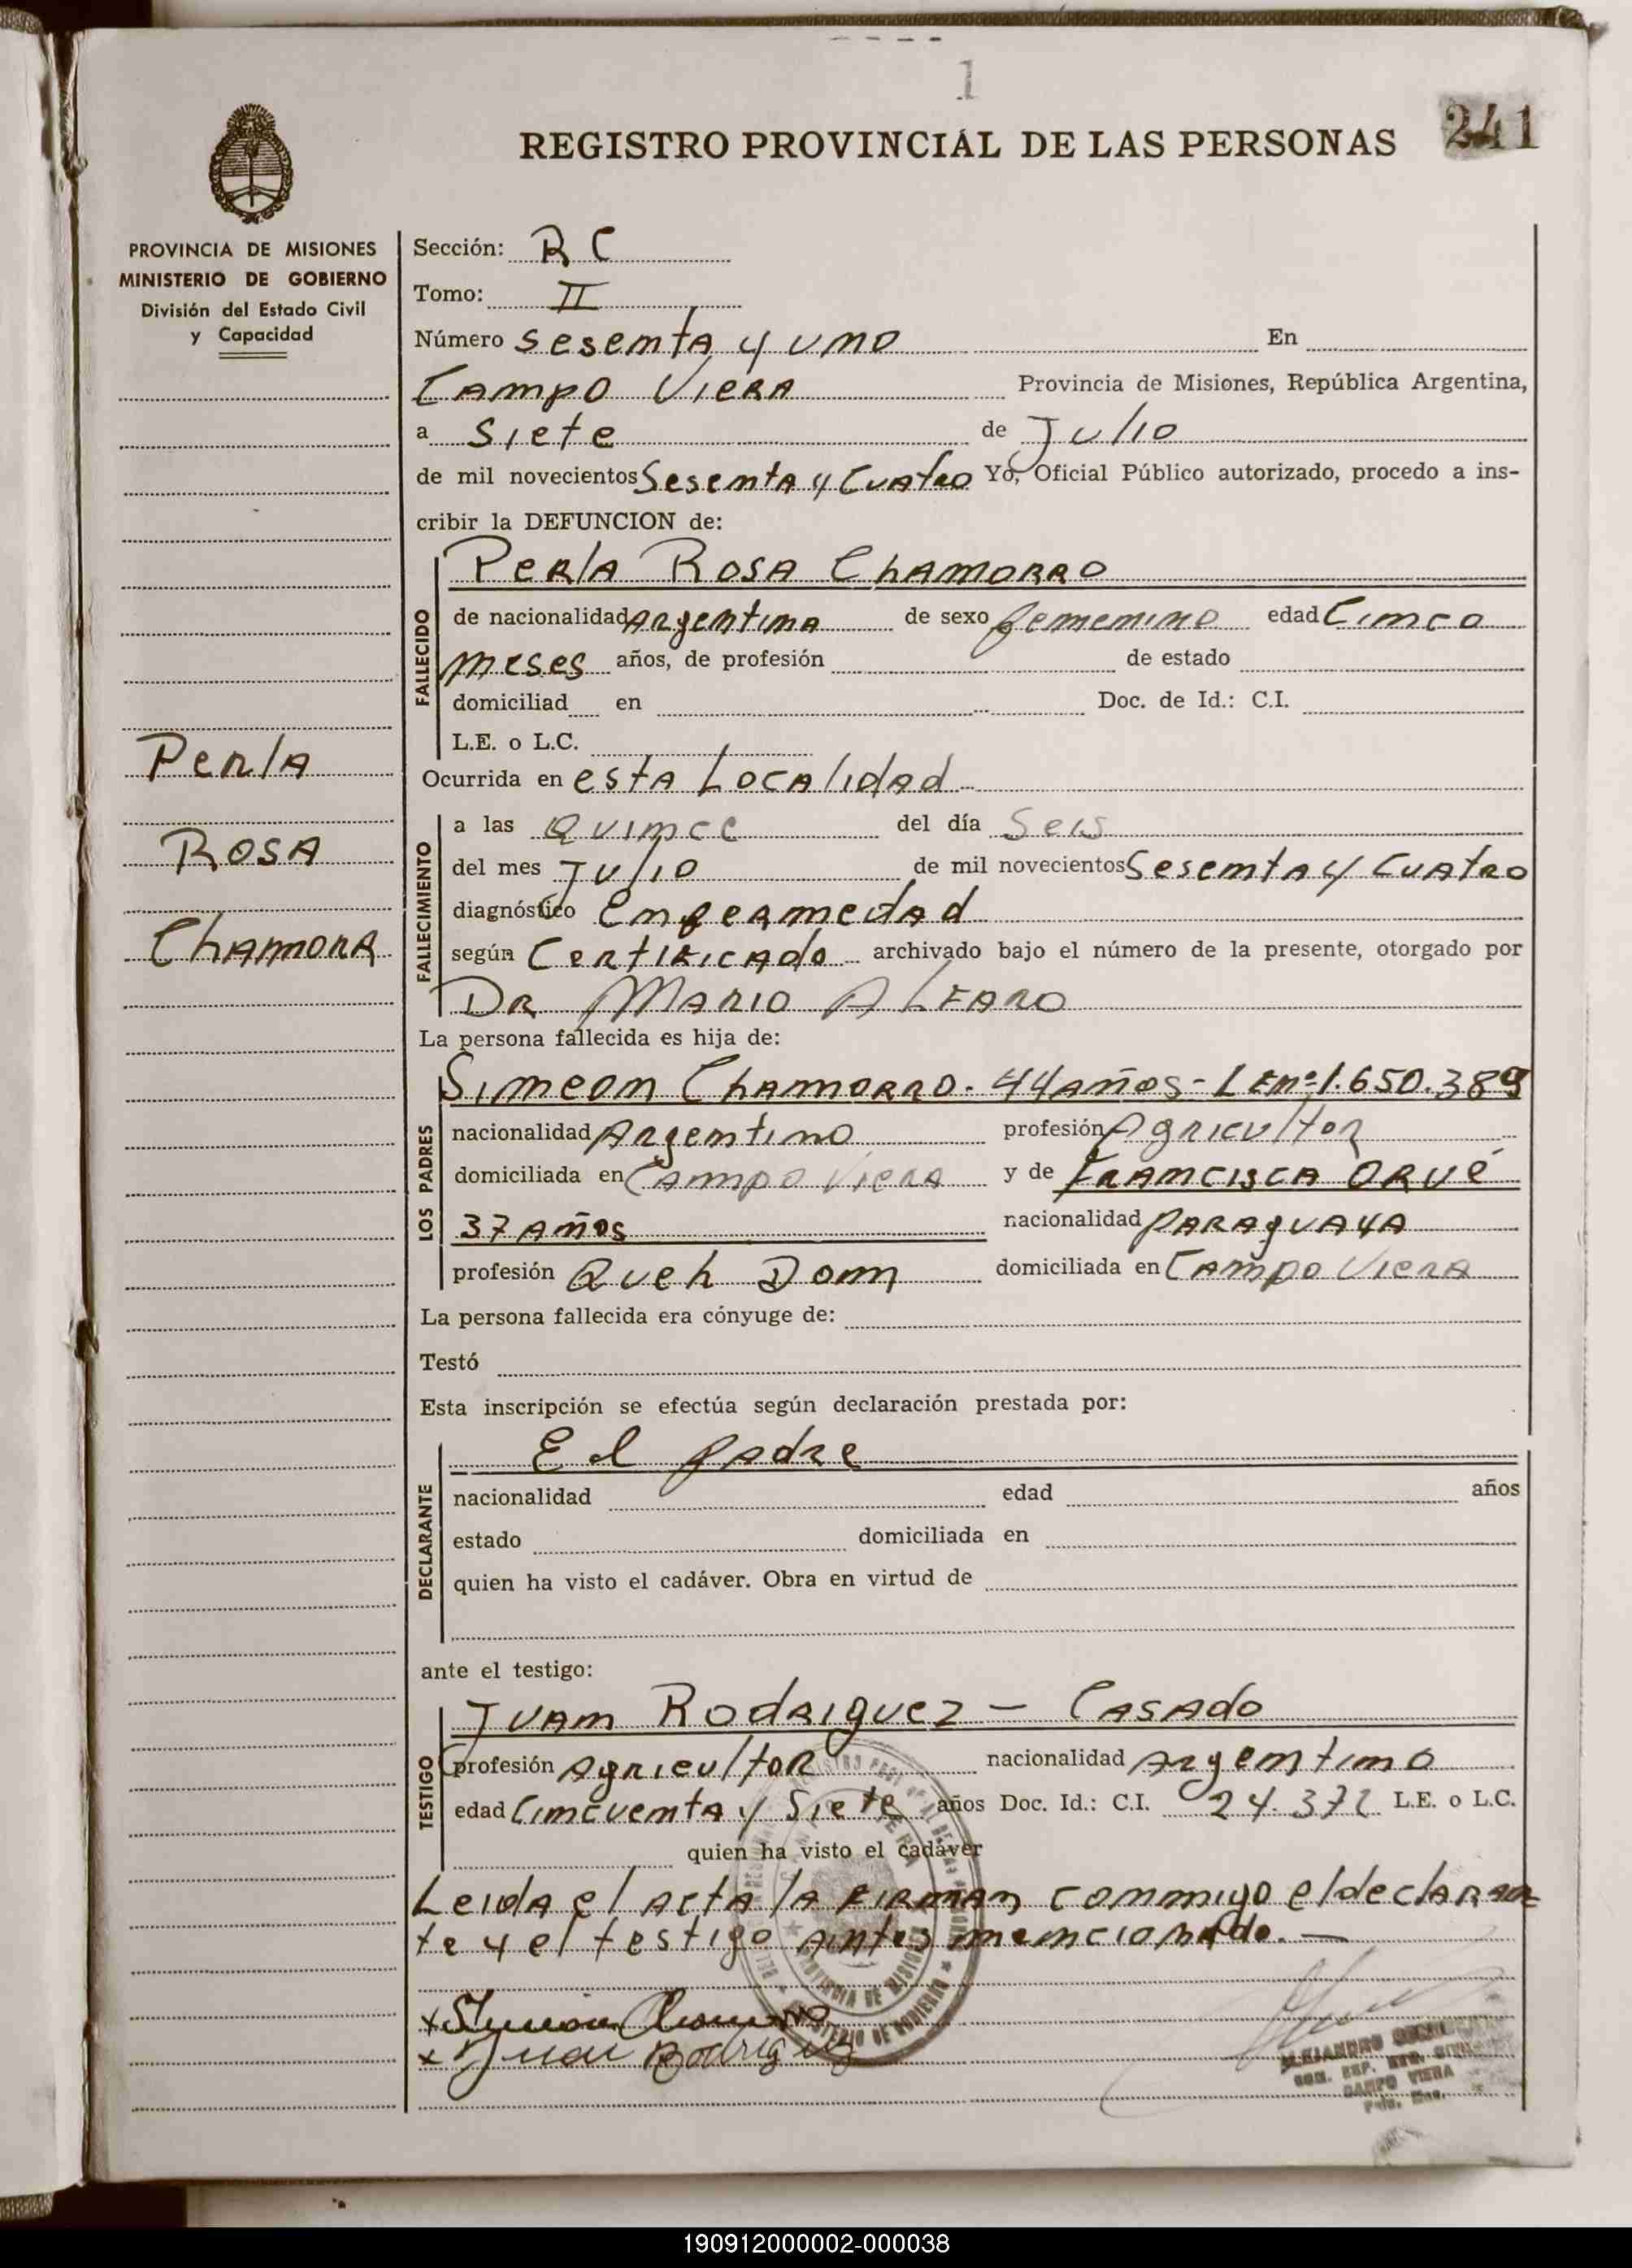 1
241
REGISTRO PROVINCIAL DE LAS PERSONAS
PROVINCIA DE MISIONES
MINISTERIO DE GOBIERNO
División del Estado Civil
y Capacidad
Perla
Rosa
Chamora
Sección: R C
Tomo: II
Número Sesenta y uno En
Campo Viera Provincia de Misiones, República Argentina,
a Siete de Julio
de mil novecientos Sesenta y Cuatro Yo, Oficial Público autorizado, procedo a ins-
cribir la DEFUNCION de:
FALLECIDO
Perla Rosa Chamorro
de nacionalidad Argentina de sexo femenino edad Cinco
meses años, de profesión de estado
domiciliad en Doc. de Id.: C.I.
L.E. o L.C.
Ocurrida en esta Localidad
FALLECIMIENTO
a las Quince del día Seis
del mes Julio de mil novecientos Sesenta y Cuatro
diagnóstico Enfermedad
según Certificado archivado bajo el número de la presente, otorgado por
DR Mario Alfaro
La persona fallecida es hija de:
LOS PADRES
Simeon Chamorro - 44 años - L En° 1.650.389
nacionalidad Argentino profesión Agricultor
domiciliada en Campo Viera y de Francisca Orué
37 Años nacionalidad Paraguaya
profesión Queh Dom domiciliada en Campo Viera
La persona fallecida era cónyuge de:
Testó
Esta inscripción se efectúa según declaración prestada por:
DECLARANTE
El padre
nacionalidad edad años
estado domiciliada en
quien ha visto el cadáver. Obra en virtud de
ante el testigo:
TESTIGO
Juan Rodriguez - Casado
profesión Agricultor nacionalidad Argentino
edad Cincuenta y Siete años Doc. Id.: C.I. 24.372 L.E. o L.C.
quien ha visto el cadáver
Leida el acta la firman conmigo el declaran
te y el testigo antes mencionado.
x Simeon Chamorro
x Juan Rodriguez
PROVINCIA DE MISIONES
MINISTERIO DE GOBIERNO
ALEJANDRO
CAMPO VIERA
190912000002-000038